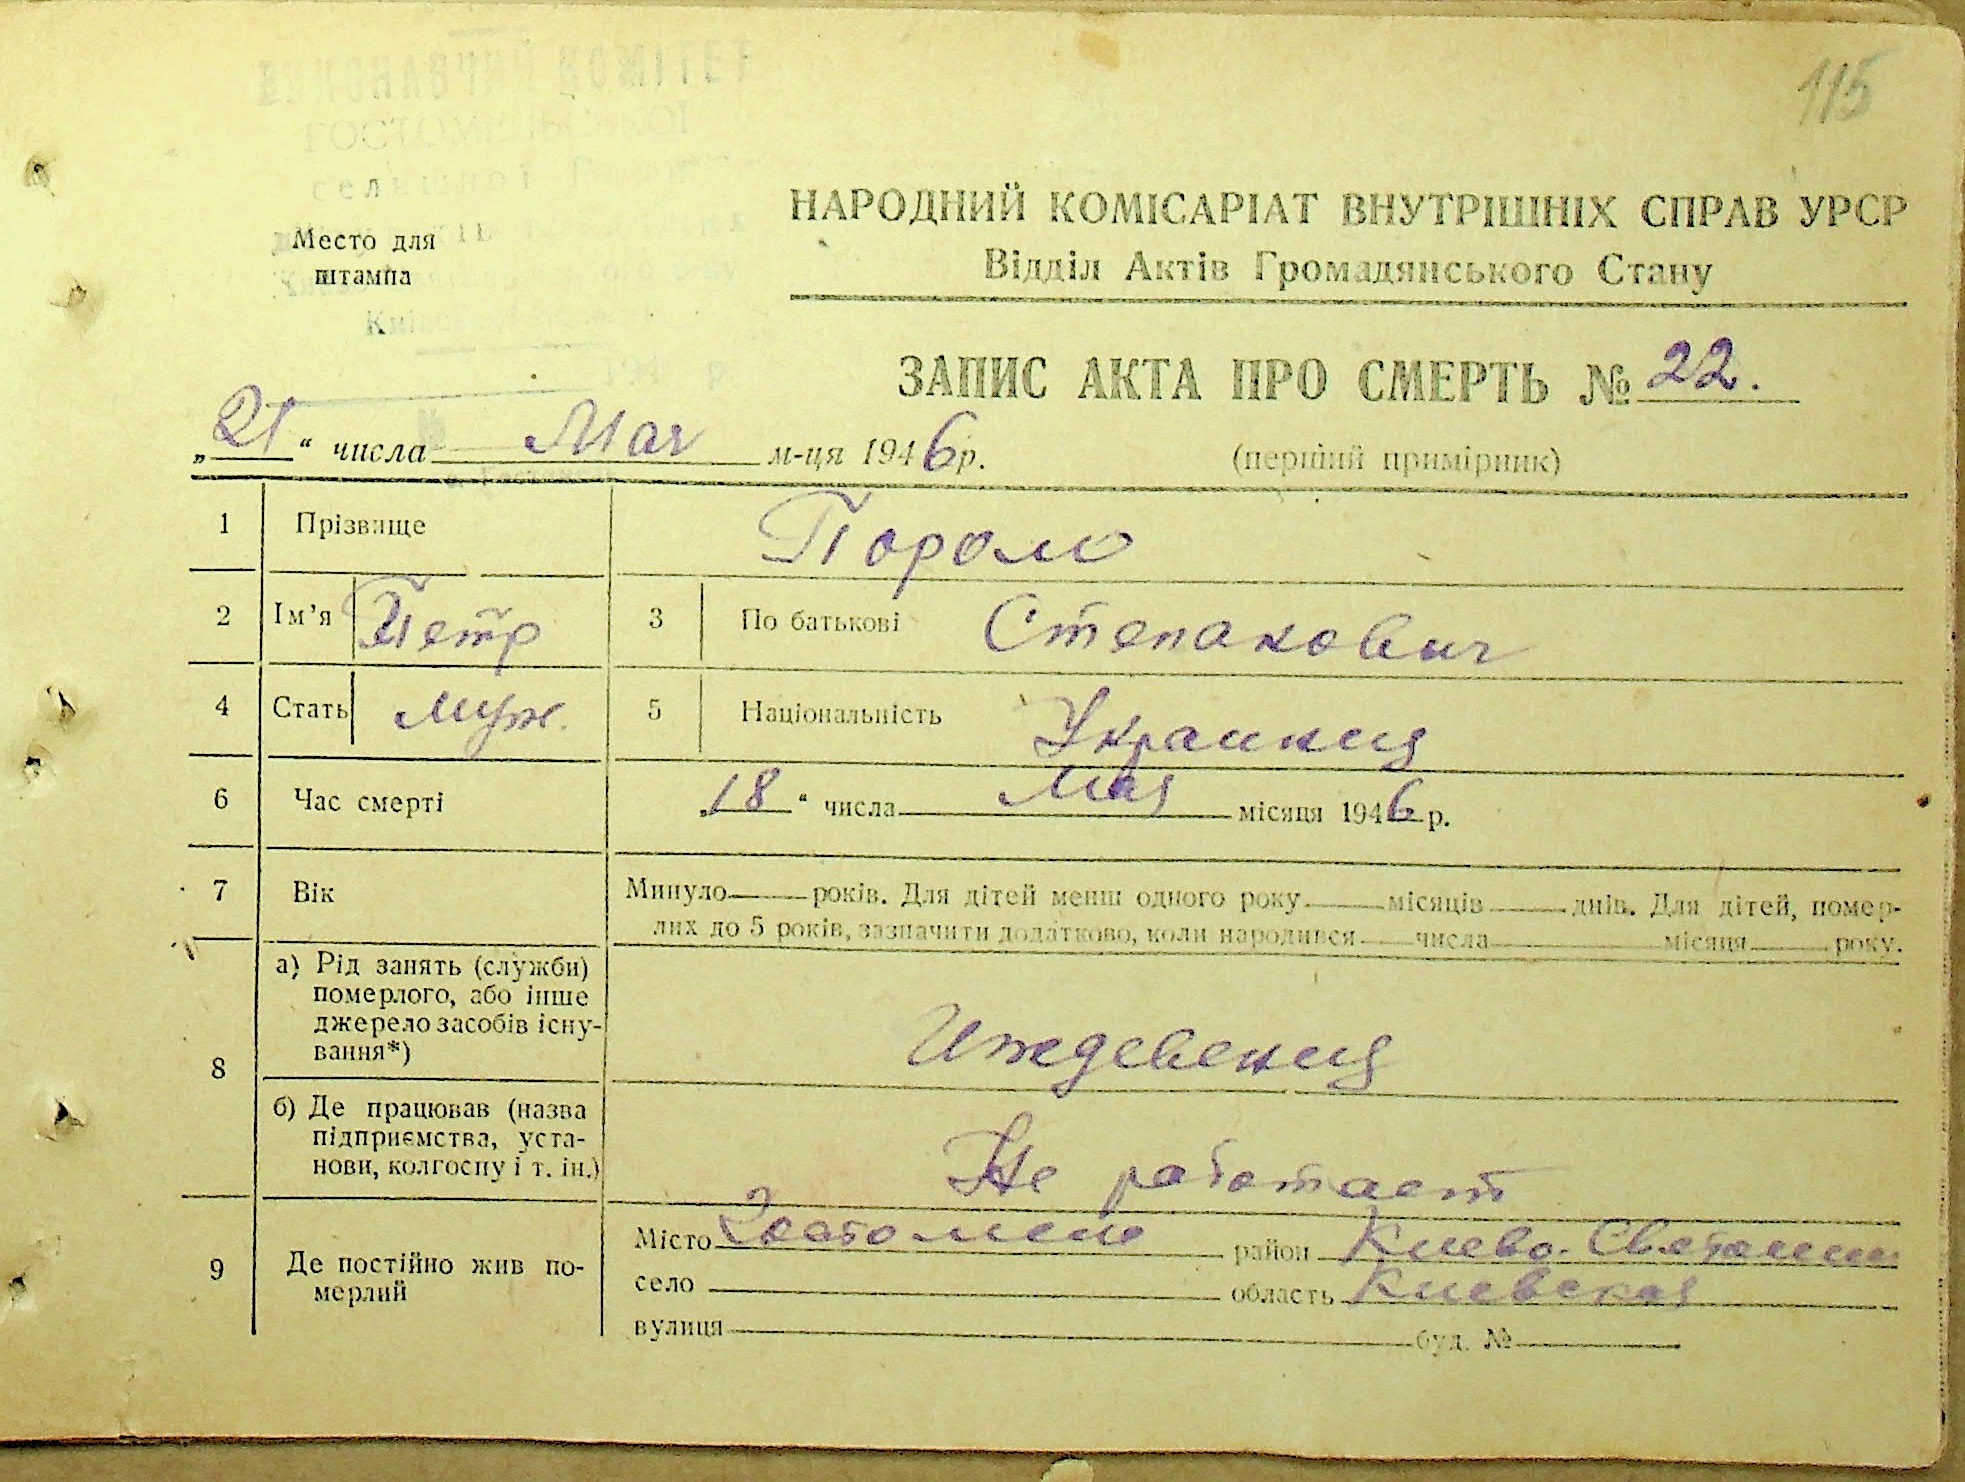 115
ГОСТОМЕЛЬСЬКОЇ
Место для
штампа
НАРОДНИЙ КОМІСАРІАТ ВНУТРІШНІХ СПРАВ УРСР
Відділ Актів Громадянського Стану
ЗАПИС АКТА ПРО СМЕРТЬ № 22.
„21“ числа Мая м-ця 1946р.
(перший примірник)
1 Прізвище Пороло
2 Ім'я Петр 3 По батькові Степанович
4 Стать муж. 5 Національність Украинец
6 Час смерті „18“ числа Мая місяця 1946 р.
7 Вік Минуло років. Для дітей менш одного року місяців днів. Для дітей, помер-
лих до 5 років, зазначити додатково, коли народився числа місяця року.
8 а) Рід занять (служби)
померлого, або інше
джерело засобів існу-
вання*)
Иждевенец
б) Де працював (назва
підприємства, уста-
нови, колгоспу і т. ін.)
Не работает
9 Де постійно жив по-
мерлий
Місто Гостомель район Киево-Святошин
село область Киевская
вулиця буд. №